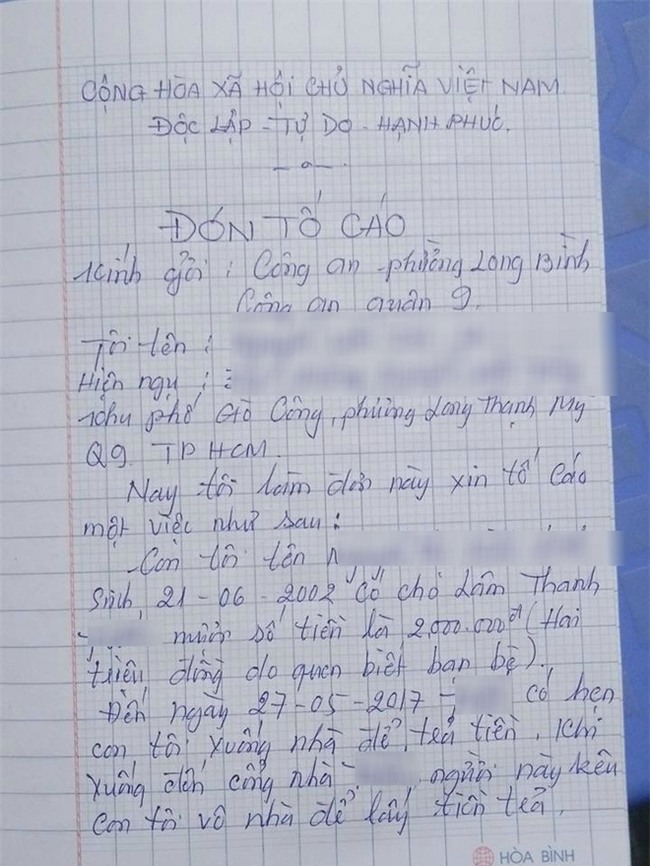 CỘNG HÒA XÃ HỘI CHỦ NGHĨA VIỆT NAM.
ĐỘC LẬP - TỰ DO - HẠNH PHÚC.
ĐƠN TỐ CÁO
Kính gửi : Công an phường Long Bình
Công an quận 9.
Tôi tên :
Hiện ngụ :
Khu phố Gò Công, phường Long Thạnh Mỹ
Q9. TP HCM.
Nay tôi làm đơn này xin tố cáo
một việc như sau :
-Con tôi tên
Sinh, 21-06-2002 có cho Lâm Thanh
mượn số tiền là 2.000.000đ (Hai
triệu đồng do quen biết bạn bè).
Đến ngày 27-05-2017 có hẹn
con tôi xuống nhà để trả tiền. Khi
xuống đến cổng nhà người này kêu
con tôi vô nhà để lấy tiền trả.
HÒA BÌNH